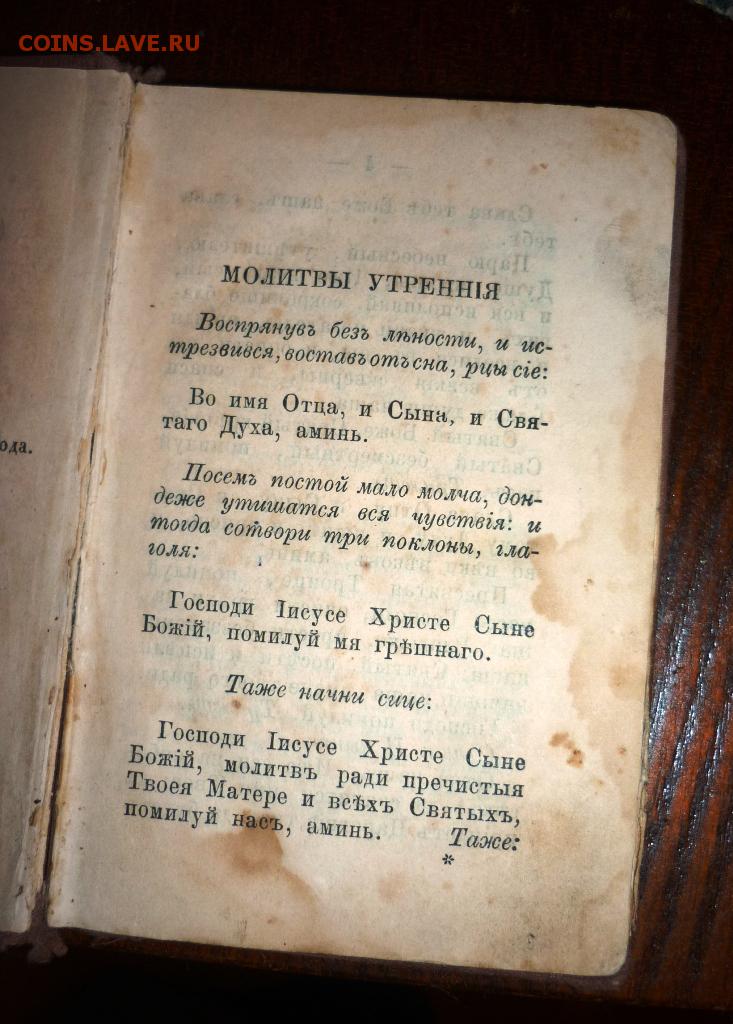 COINS.LAVE.RU
ода.
МОЛИТВЫ УТРЕННІЯ
Воспрянувъ безъ лѣности, и ис-
трезвився, воставъ отъ сна, рцы сіе:
Во имя Отца, и Сына, и Свя-
таго Духа, аминь.
Посемъ постой мало молча, дон-
деже утишатся вся чувствія: и
тогда сотвори три поклоны, гла-
голя:
Господи Іисусе Христе Сыне
Божій, помилуй мя грѣшнаго.
Таже начни сице:
Господи Іисусе Христе Сыне
Божій, молитвъ ради пречистыя
Твоея Матере и всѣхъ Святыхъ,
помилуй насъ, аминь. Таже:
*